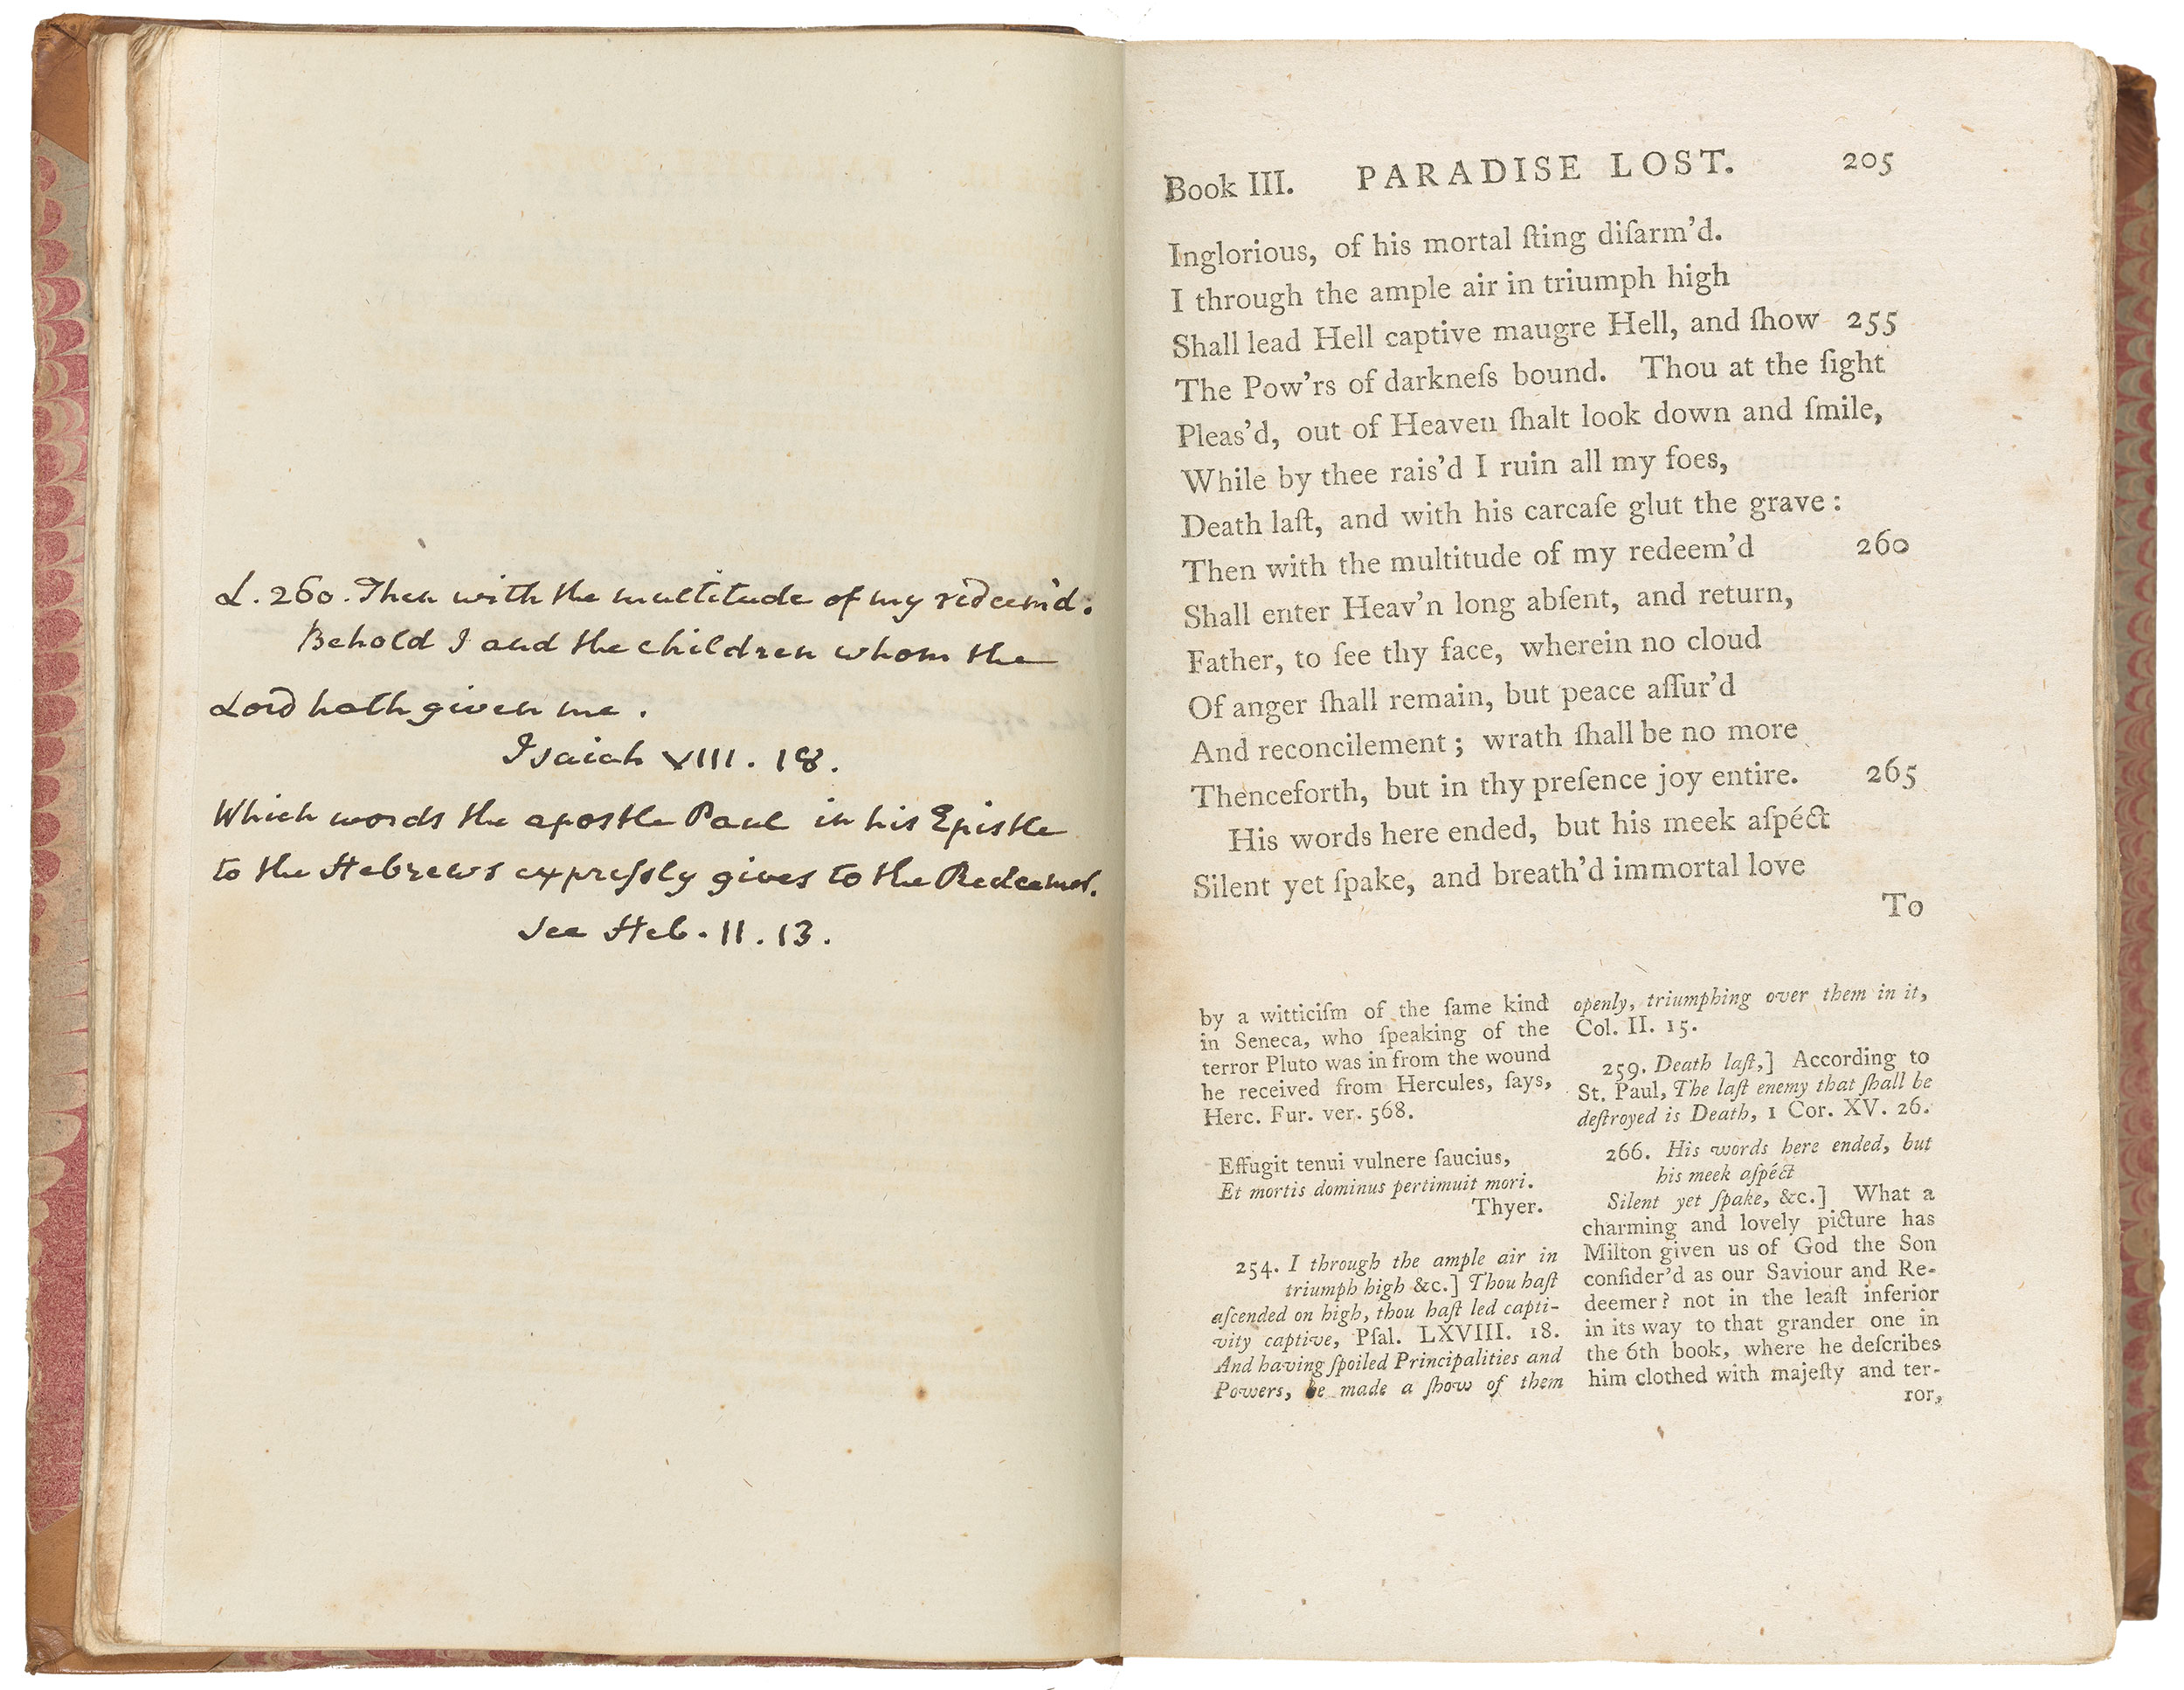 L. 260. Then with the multitude of my redeem'd.
Behold I and the children whom the
Lord hath given me.
Isaiah VIII. 18.
Which words the apostle Paul in his Epistle
to the Hebrews expreſsly gives to the Redeemer.
See Heb. II. 13.
Book III. PARADISE LOST. 205
Inglorious, of his mortal ſting diſarm'd.
I through the ample air in triumph high
Shall lead Hell captive maugre Hell, and ſhow 255
The Pow'rs of darkneſs bound. Thou at the ſight
Pleas'd, out of Heaven ſhalt look down and ſmile,
While by thee rais'd I ruin all my foes,
Death laſt, and with his carcaſe glut the grave:
Then with the multitude of my redeem'd 260
Shall enter Heav'n long abſent, and return,
Father, to ſee thy face, wherein no cloud
Of anger ſhall remain, but peace aſſur'd
And reconcilement; wrath ſhall be no more
Thenceforth, but in thy preſence joy entire. 265
His words here ended, but his meek aſpéct
Silent yet ſpake, and breath'd immortal love
To
by a witticiſm of the ſame kind
in Seneca, who ſpeaking of the
terror Pluto was in from the wound
he received from Hercules, ſays,
Herc. Fur. ver. 568.
Effugit tenui vulnere ſaucius,
Et mortis dominus pertimuit mori.
Thyer.
254. I through the ample air in
triumph high &c.] Thou haſt
aſcended on high, thou haſt led capti-
vity captive, Pſal. LXVIII. 18.
And having ſpoiled Principalities and
Powers, he made a ſhow of them
openly, triumphing over them in it,
Col. II. 15.
259. Death laſt,] According to
St. Paul, The laſt enemy that ſhall be
deſtroyed is Death, 1 Cor. XV. 26.
266. His words here ended, but
his meek aſpéct
Silent yet ſpake, &c.] What a
charming and lovely picture has
Milton given us of God the Son
conſider'd as our Saviour and Re-
deemer? not in the leaſt inferior
in its way to that grander one in
the 6th book, where he deſcribes
him clothed with majeſty and ter-
ror,